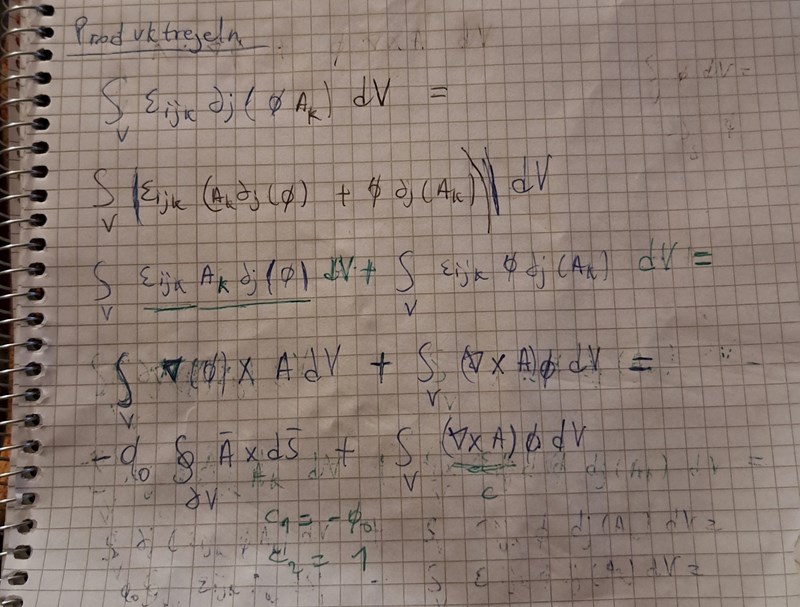 Produktregeln
∫_V ε_ijk ∂j(ϕ A_k) dV =
∫_V |ε_ijk (A_k ∂j(ϕ) + ϕ ∂j(A_k))| dV
∫_V ε_ijk A_k ∂j(ϕ) dV + ∫_V ε_ijk ϕ ∂j(A_k) dV =
∫_V ∇(ϕ) × A dV + ∫_V (∇ × A) ϕ dV =
-ϕ_0 ∮_∂V Ā × dS̄ + ∫_V (∇ × A) ϕ dV
c
c_1 = -ϕ_0
c_2 = 1